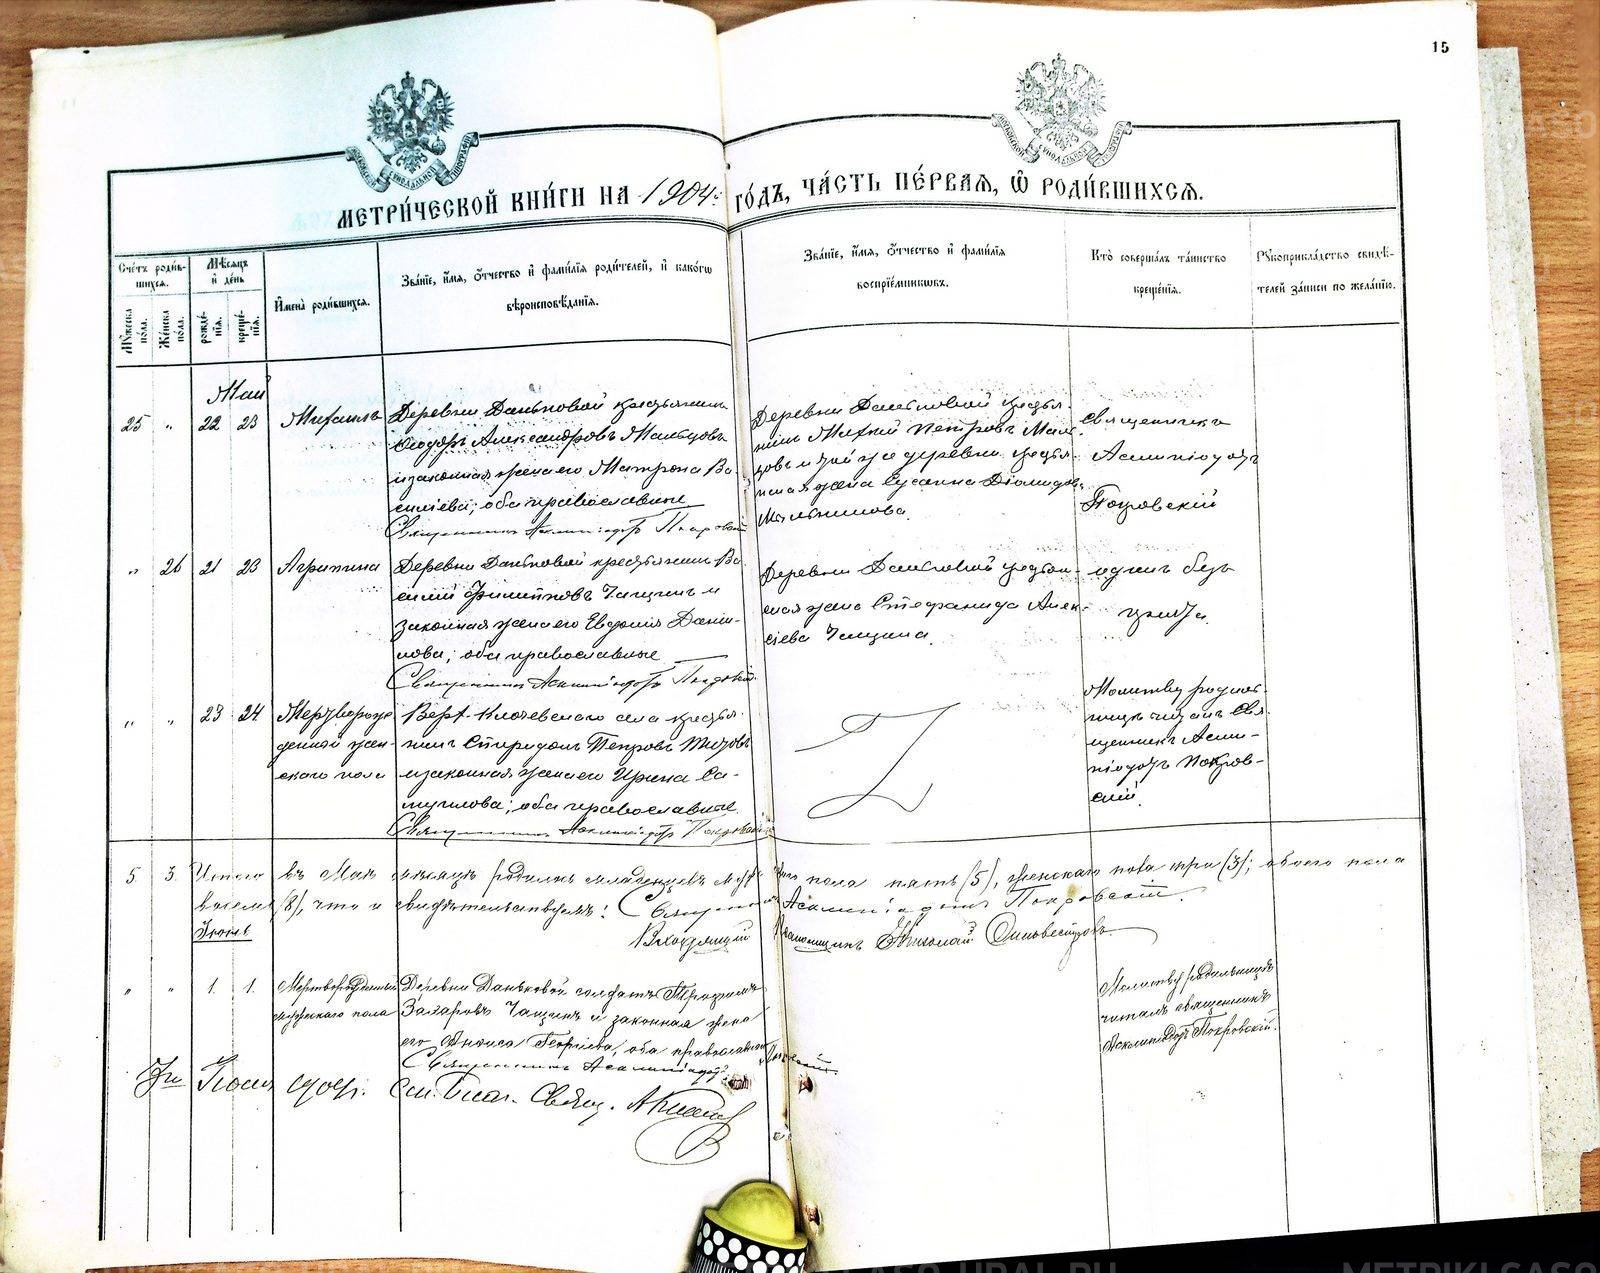 15
МЕТРИ́ЧЕСКОЙ КНИ́ГИ НА 1904й ГО́ДЪ, ЧА́СТЬ ПЕ́РВАЯ, Ѿ РОДИ́ВШИХСЯ.
Сче́тъ роди́в-
шихся.
Му́жеска по́ла.
Же́нска по́ла.
Мѣ́сяцъ и де́нь
рожде́-
нія.
креще́-
нія.
Имена̀ роди́вшихся.
Зва́ніе, и́мя, о́тчество и фами́лія роди́телей, и како́гѡ
вѣроисповѣ́данія.
Зва́ніе, и́мя, о́тчество и фами́лія
воспріе́мниковъ.
Кто̀ соверша́лъ та́инство
креще́нія.
Рукоприкла́дство свидѣ́-
телей за́писи по жела́нію.
Май
25 „ 22 23 Михаилъ
Деревни Даньковой крестьянинъ
Ѳеодоръ Александровъ
и законная жена его Матрона Ва-
сильева; оба православные
Священникъ Асклипіодотъ Покровскій
Деревни Даньковой крестья-
нинъ Петровъ
и той же деревни крестья-
нская жена Сусанна Діомидова
Священникъ
Асклипіодотъ
Покровскій
„ 26 21 23 Агрипина
Деревни Даньковой крестьянинъ Ва-
силій Филипповъ Чащинъ и
законная жена его Евдокія Дани-
лова; оба православные
Священникъ Асклипіодотъ Покровскій
Деревни Даньковой крестьян-
ская жена Стефанида Алек-
сіева Чащина
одинъ безъ
причта.
„ „ 23 24 Мертворож-
денной жен-
скаго пола
Верх-Ключевскаго села крестья-
нинъ Спиридонъ Петровъ Титовъ
и законная жена его Ирина Са-
муилова; оба православные
Священникъ Асклипіодотъ Покровскій
Молитву родиль-
ницѣ читалъ Свя-
щенникъ Аскли-
піодотъ Покров-
скій.
5 3 Итого въ Маѣ мѣсяцѣ родилось младенцевъ мужескаго пола пять (5), женскаго пола три (3); обоего пола
восемь (8), что и свидѣтельствуемъ: Священникъ Асклипіодотъ Покровскій.
Псаломщикъ Николай Сильвестровъ
Іюнь
„ „ 1 1 Мертворожденный
мужескаго пола
Деревни Даньковой солдатъ Трофимъ
Захаровъ Чащинъ и законная жена
его Анѳиса Георгіева, оба православные
Священникъ Асклипіодотъ Покровскій.
Молитву родильницѣ
читалъ священникъ
Асклипіодотъ Покровскій.
1904 г.
Свящ.